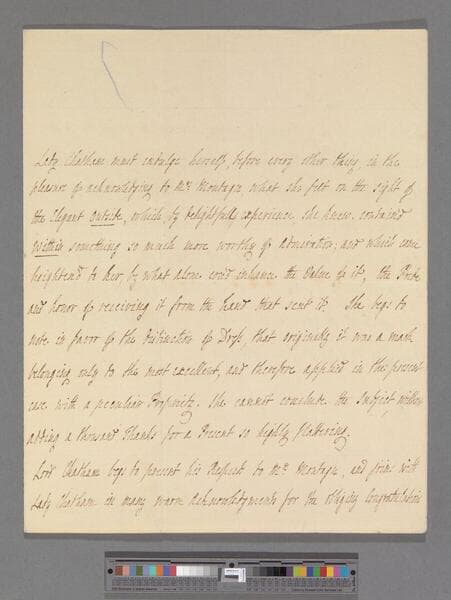 Lady Chatham must indulge herself, before every other thing, in the
pleasure of acknowledging to Mrs. Montagu what she felt on the sight of
the Elegant Outside, which, by delightfull experience she knew contain'd
Within something so much more worthy of admiration; and which came
heighten'd to her by what alone cou'd inhance the Value of it, the Pride
and honor of receiving it from the hand that sent it. She begs to
note in favor of the Distinction of Dress, that originally it was a mark
belonging only to the most excellent, and therefore applied in the present
case with a peculiar Propriety. She cannot conclude the Subject, without
adding a thousand Thanks for a Present so highly flattering.
Lord Chatham begs to present his Respects to Mrs. Montagu, and joins with
Lady Chatham in many warm Acknowledgments for the obliging Congratulations